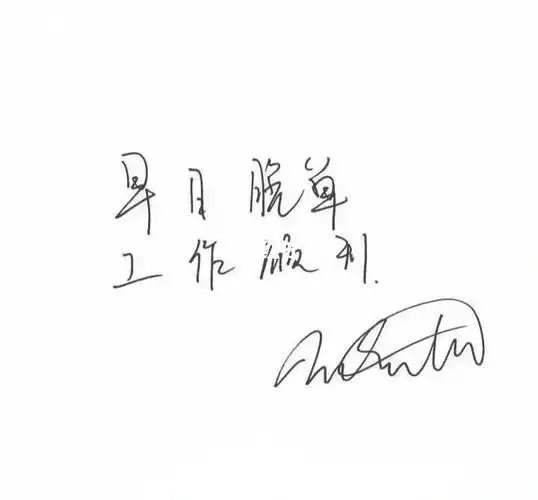 早日脱单
工作顺利.